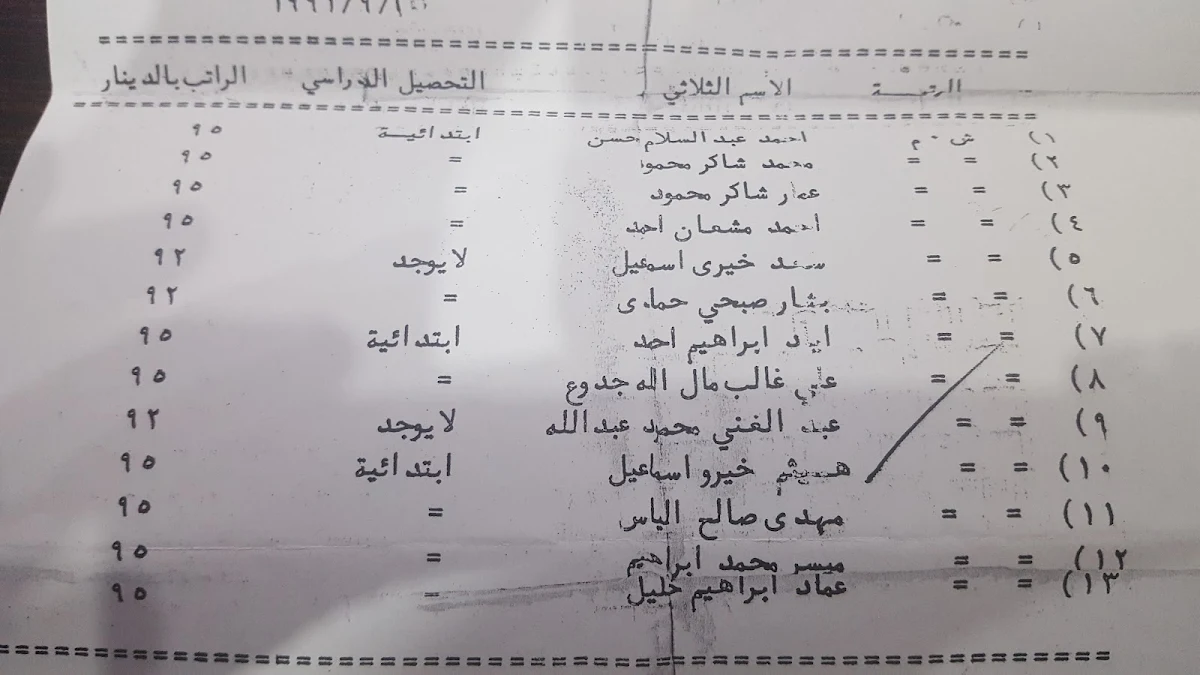 الرتبـــة الأسم الثلاثي التحصيل الدراسي الراتب بالدينار
١) ش . م احمد عبد السلام حسن ابتدائيـة ٩٥
٢) = = محمد شاكر محمود = ٩٥
٣) = = عمار شاكر محمود = ٩٥
٤) = = احمد مشعان احمد = ٩٥
٥) = = سعد خيرى اسمعيل لا يوجد ٩٢
٦) = = بشار صبحي حمادى = ٩٢
٧) = = اياد ابراهيم احمد ابتدائية ٩٥
٨) = = علي غالب مال الله جدوع = ٩٥
٩) = = عبد الغني محمد عبد الله لا يوجد ٩٢
١٠) = = هـيثم خيرو اسماعيل ابتدائية ٩٥
١١) = = مهدى صالح الياس = ٩٥
١٢) = = ميسر محمد ابراهيم = ٩٥
١٣) = = عماد ابراهيم خليل = ٩٥